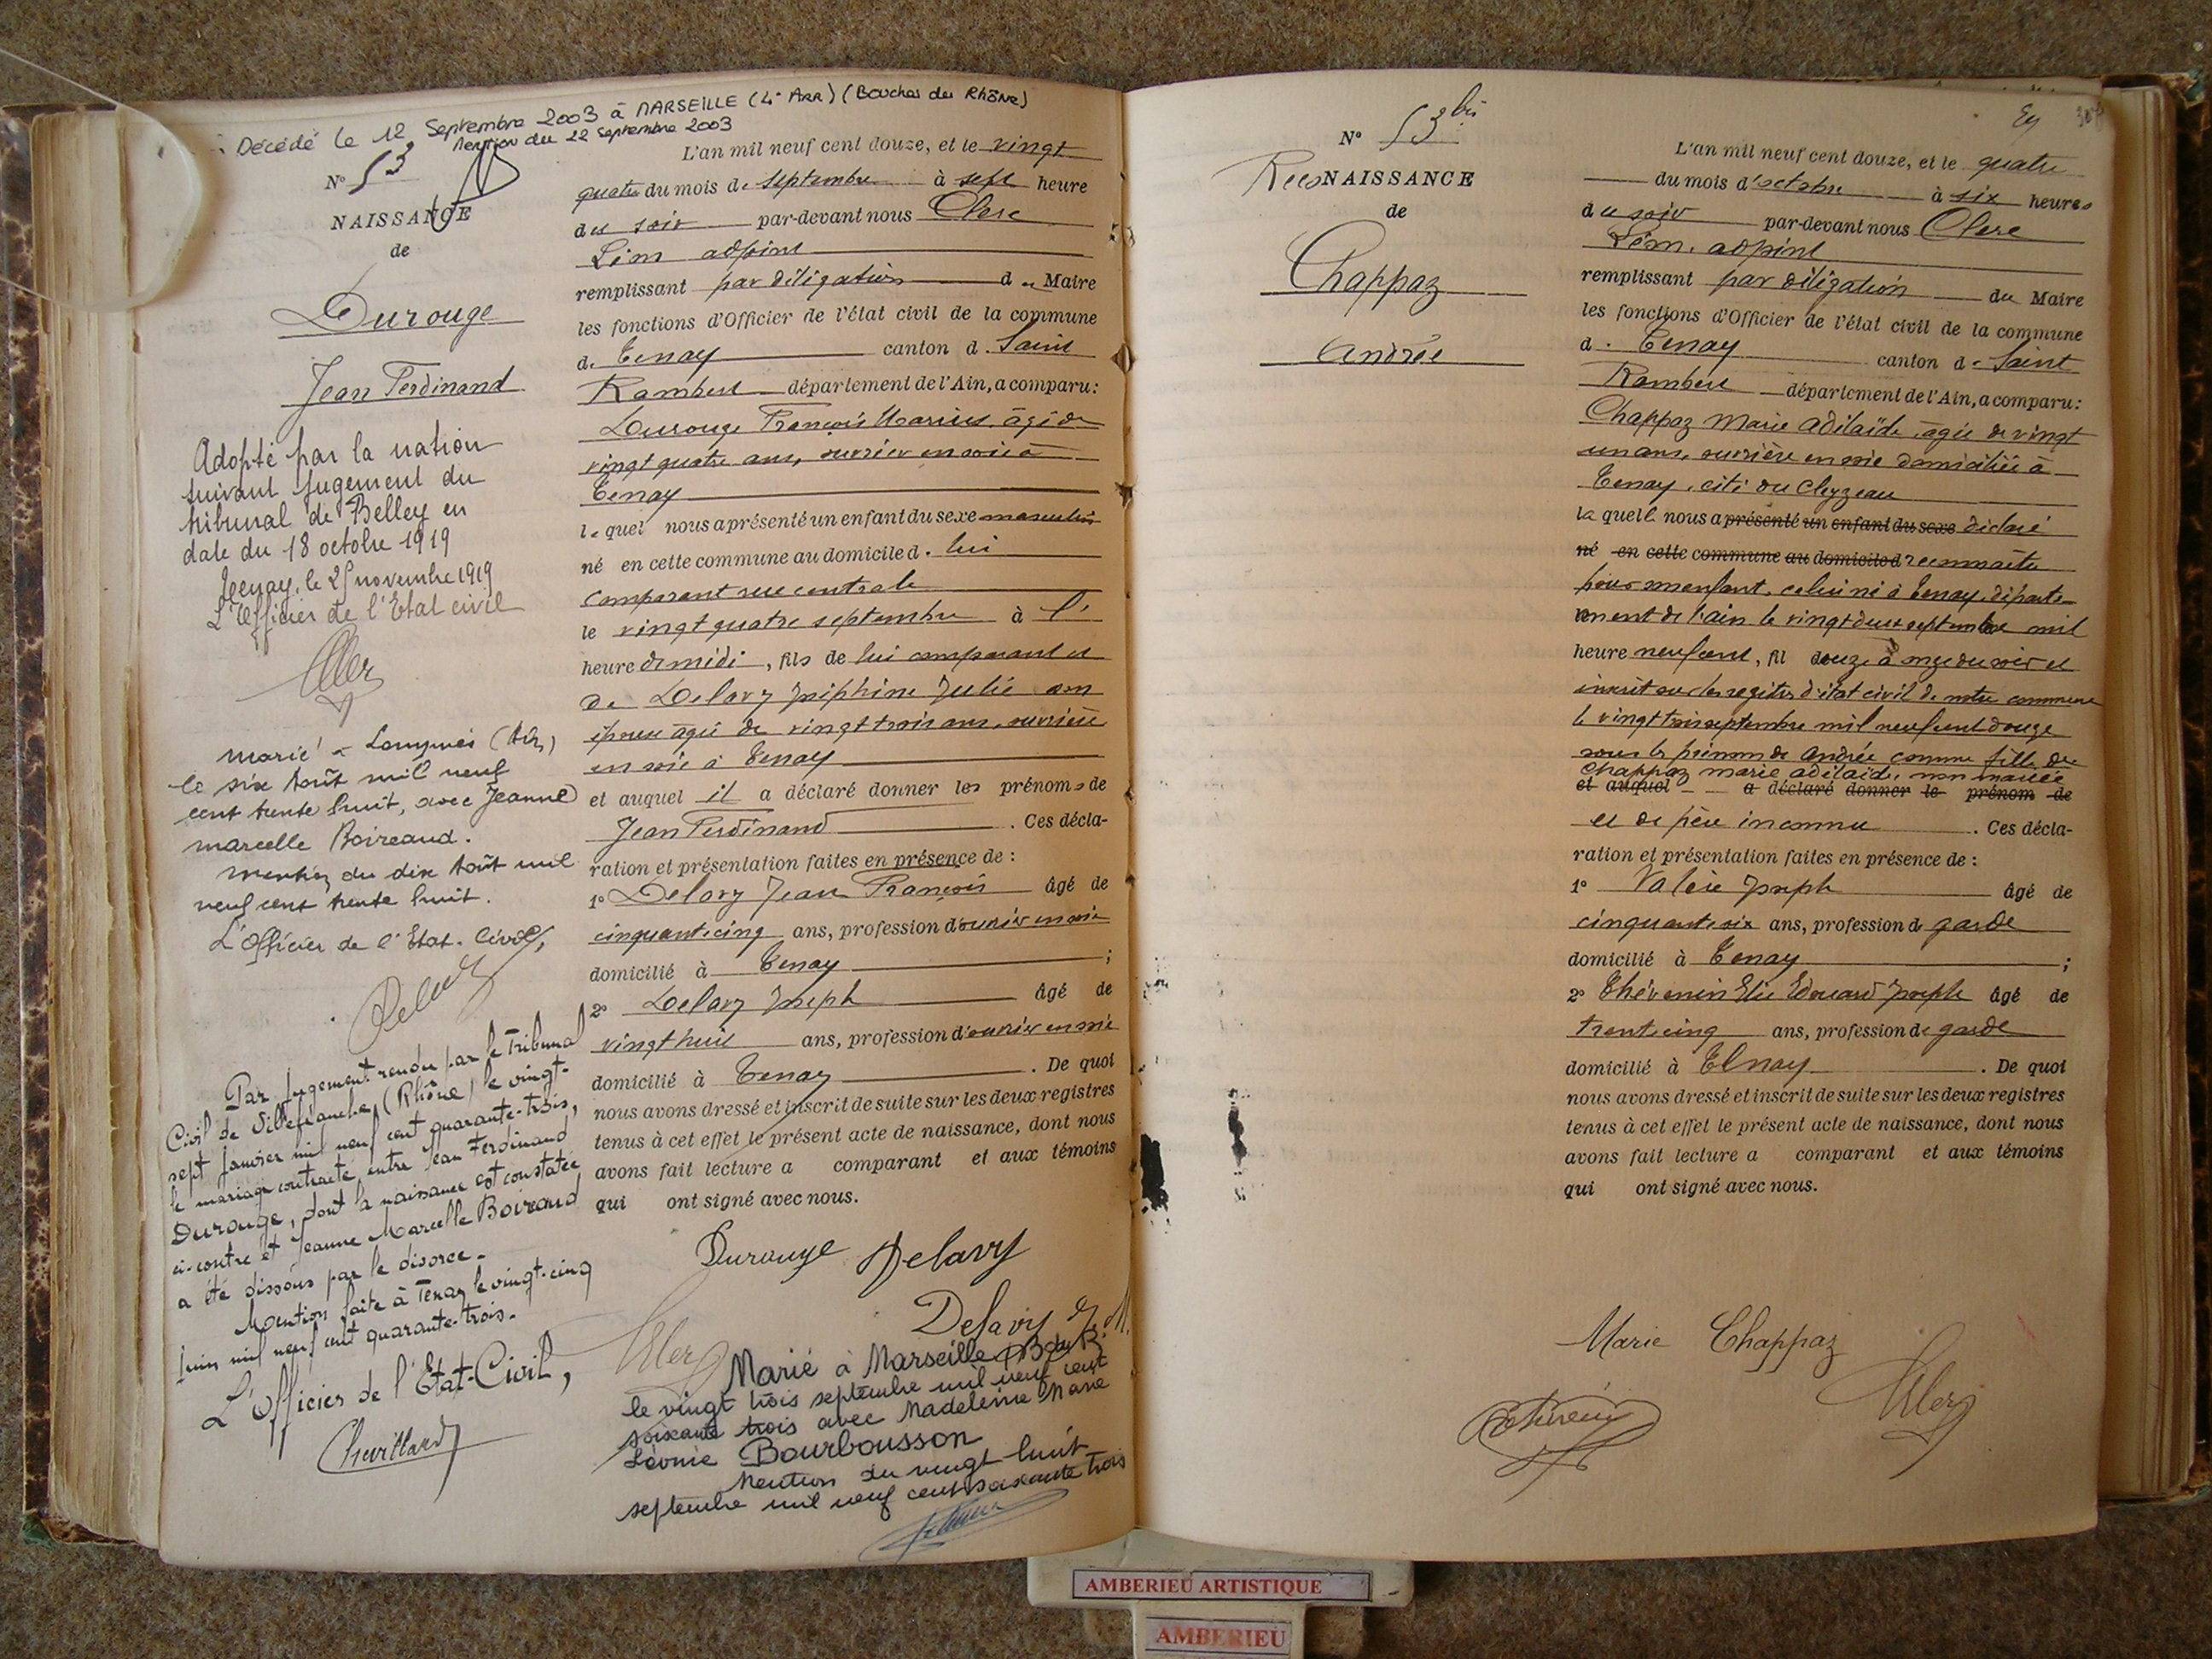 Décédé le 12 Septembre 2003 à MARSEILLE (4e ARR) (Bouches du Rhône)
Mention du 22 Septembre 2003
N° 53
NAISSANCE
de
Durouge
Jean Ferdinand
Adopté par la nation
suivant jugement du
tribunal de Belley en
date du 18 octobre 1919
Tenay, le 25 novembre 1919
L'Officier de l'Etat civil
Marié à (Ain)
le six Août mil neuf
cent trente huit, avec Jeanne
Marcelle Boireaud.
Mention du dix Août mil
neuf cent trente huit.
L'Officier de l'Etat-Civil,
Par jugement rendu par le Tribunal
Civil de Villefranche (Rhône) le vingt-
sept janvier mil neuf cent quarante-trois,
le mariage contracté entre Jean Ferdinand
Durouge, dont la naissance est constatée
ci-contre et Jeanne Marcelle Boiraud
a été dissous par le divorce.
Mention faite à Tenay le vingt-cinq
juin mil neuf cent quarante-trois.
L'Officier de l'Etat-Civil,
Chevillard
L'an mil neuf cent douze, et le vingt
quatre du mois de septembre à sept heure
du soir par-devant nous Clerc
Léon adjoint
remplissant par délégation du Maire
les fonctions d'Officier de l'état civil de la commune
de Tenay canton de Saint
Rambert département de l'Ain, a comparu:
Durouge François Marius, âgé de
vingt quatre ans, ouvrier en soie à
Tenay
lequel nous a présenté un enfant du sexe masculin
né en cette commune au domicile de lui
comparant rue centrale
le vingt quatre septembre à l'
heure de midi, fils de lui comparant et
de Delavy Joséphine Julie son
épouse âgée de vingt trois ans, ouvrière
en soie à Tenay
et auquel il a déclaré donner les prénoms de
Jean Ferdinand. Ces décla-
ration et présentation faites en présence de :
1° Delavy Jean François âgé de
cinquante cinq ans, profession d'ouvrier en soie
domicilié à Tenay ;
2° Delavy Joseph âgé de
vingt huit ans, profession d'ouvrier en soie
domicilié à Tenay. De quoi
nous avons dressé et inscrit de suite sur les deux registres
tenus à cet effet le présent acte de naissance, dont nous
avons fait lecture a comparant et aux témoins
qui ont signé avec nous.
Durouge Delavy
Delavy J. M.
Marié à Marseille (B du R.
le vingt trois septembre mil neuf cent
soixante trois avec Madeleine Marie
Léonie Bourbousson
Mention du vingt huit
septembre mil neuf cent soixante trois
N° 53 bis
RecoNAISSANCE
de
Chappaz
Andrée
L'an mil neuf cent douze, et le quatre
du mois d'octobre à six heures
du soir par-devant nous Clerc
Léon, adjoint
remplissant par délégation du Maire
les fonctions d'Officier de l'état civil de la commune
de Tenay canton de Saint
Rambert département de l'Ain, a comparu:
Chappaz Marie Adélaïde, âgée de vingt
un ans, ouvrière en soie domiciliée à
Tenay, cité du Cleyzeau
laquelle nous a présenté un enfant du sexe déclaré
né en cette commune au domicile d reconnaître
pour son enfant, celui né à Tenay, départe-
ment de l'ain le vingt deux septembre mil
heure neuf cent, fil douze à onze du soir et
inscrit sur les registres d'état civil de notre commune
le vingt trois septembre mil neuf cent douze
sous le prénom de Andrée comme fille de
Chappaz Marie Adélaïde, non mariée
et auquel a déclaré donner le prénom de
et de père inconnu. Ces décla-
ration et présentation faites en présence de :
1° Joseph âgé de
cinquante six ans, profession de garde
domicilié à Tenay ;
2° Thévenin Elie Edouard Joseph âgé de
trente cinq ans, profession de garde
domicilié à Tenay. De quoi
nous avons dressé et inscrit de suite sur les deux registres
tenus à cet effet le présent acte de naissance, dont nous
avons fait lecture a comparant et aux témoins
qui ont signé avec nous.
Marie Chappaz
AMBERIEU ARTISTIQUE
AMBERIEU